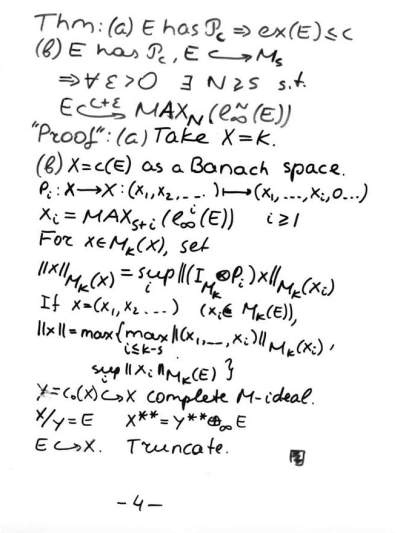 Thm: (a) E has P_c ⇒ ex(E) ≤ c
(b) E has P_c, E ↪ M_s
⇒ ∀ ε > 0 ∃ N ≥ s s.t.
E ↪^{c+ε} MAX_N(ℓ_∞^~(E))
"Proof": (a) Take X = K.
(b) X = c(E) as a Banach space.
P_i : X → X : (x_1, x_2, ...) ⟼ (x_1, ..., x_i, 0...)
X_i = MAX_{s+i}(ℓ_∞^i(E)) i ≥ 1
For x ∈ M_k(X), set
‖x‖_{M_k(X)} = sup_i ‖(I_{M_k} ⊗ P_i)x‖_{M_k(X_i)}
If x = (x_1, x_2 ...) (x_i ∈ M_k(E)),
‖x‖ = max{ max_{i≤k-s} ‖(x_1, ..., x_i)‖_{M_k(X_i)},
sup ‖x_i‖_{M_k(E)} }
Y = c_0(X) ↪ X complete M-ideal.
X/Y = E X** = Y** ⊕_∞ E
E ↪ X. Truncate.
-4-